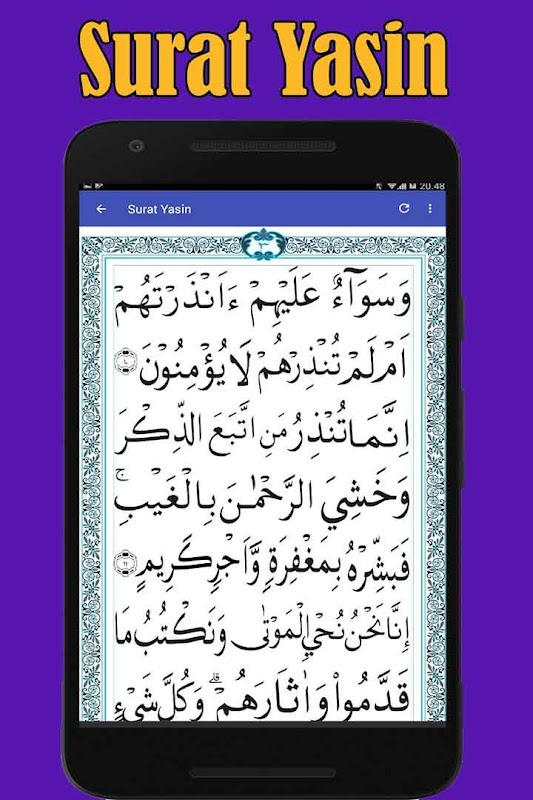 Surat Yasin
20.48
Surat Yasin
٣
وَسَوَآءٌ عَلَيْهِمْ ءَاَنْذَرْتَهُمْ
اَمْ لَمْ تُنْذِرْهُمْ لَا يُؤْمِنُوْنَ ۝١٠
اِنَّمَا تُنْذِرُ مَنِ اتَّبَعَ الذِّكْرَ
وَخَشِيَ الرَّحْمٰنَ بِالْغَيْبِۚ
فَبَشِّرْهُ بِمَغْفِرَةٍ وَّاَجْرٍ كَرِيْمٍ ۝١١
اِنَّا نَحْنُ نُحْيِ الْمَوْتٰى وَنَكْتُبُ مَا
قَدَّمُوْا وَاٰثَارَهُمْۗ وَكُلَّ شَيْءٍ